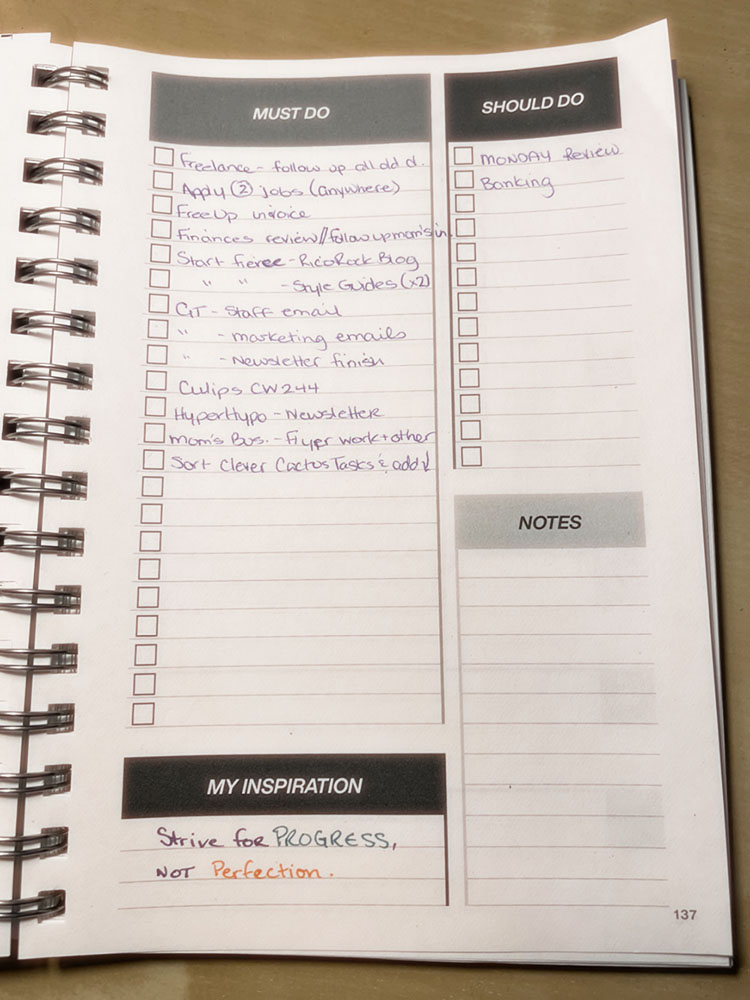 MUST DO
Freelance - follow up all old
Apply (2) jobs (anywhere)
FreeUp invoice
Finances review//follow up mom's in.
Start Fierce - RicoRock Blog
" " - Style Guides (x2)
GT - Staff email
" - marketing emails
" - Newsletter finish
Culips CW244
HyperHypo - Newsletter
Mom's Bus. - Flyer work + other
Sort Clever Cactus Tasks & add
MY INSPIRATION
Strive for PROGRESS,
NOT Perfection.
SHOULD DO
MONDAY Review
Banking
NOTES
137